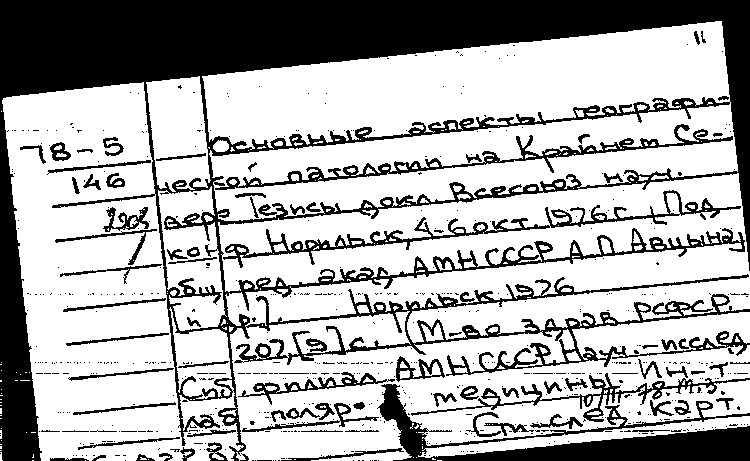 11
78-5 Основные аспекты географи-
146 ческой патологии на Крайнем Се-
2903 вере Тезисы докл. Всесоюз науч.
конф. Норильск, 4-6 окт. 1976 г. [Под
общ. ред. акад. АМН СССР А.П. Авцына
[и др.]. Норильск, 1976
207, [9] с. (М-во здрав РСФСР.
Сиб. филиал АМН СССР. Науч.-исслед
лаб. поляр. медицины. Ин-т.
10/III-78. М.З.
См. след. карт.